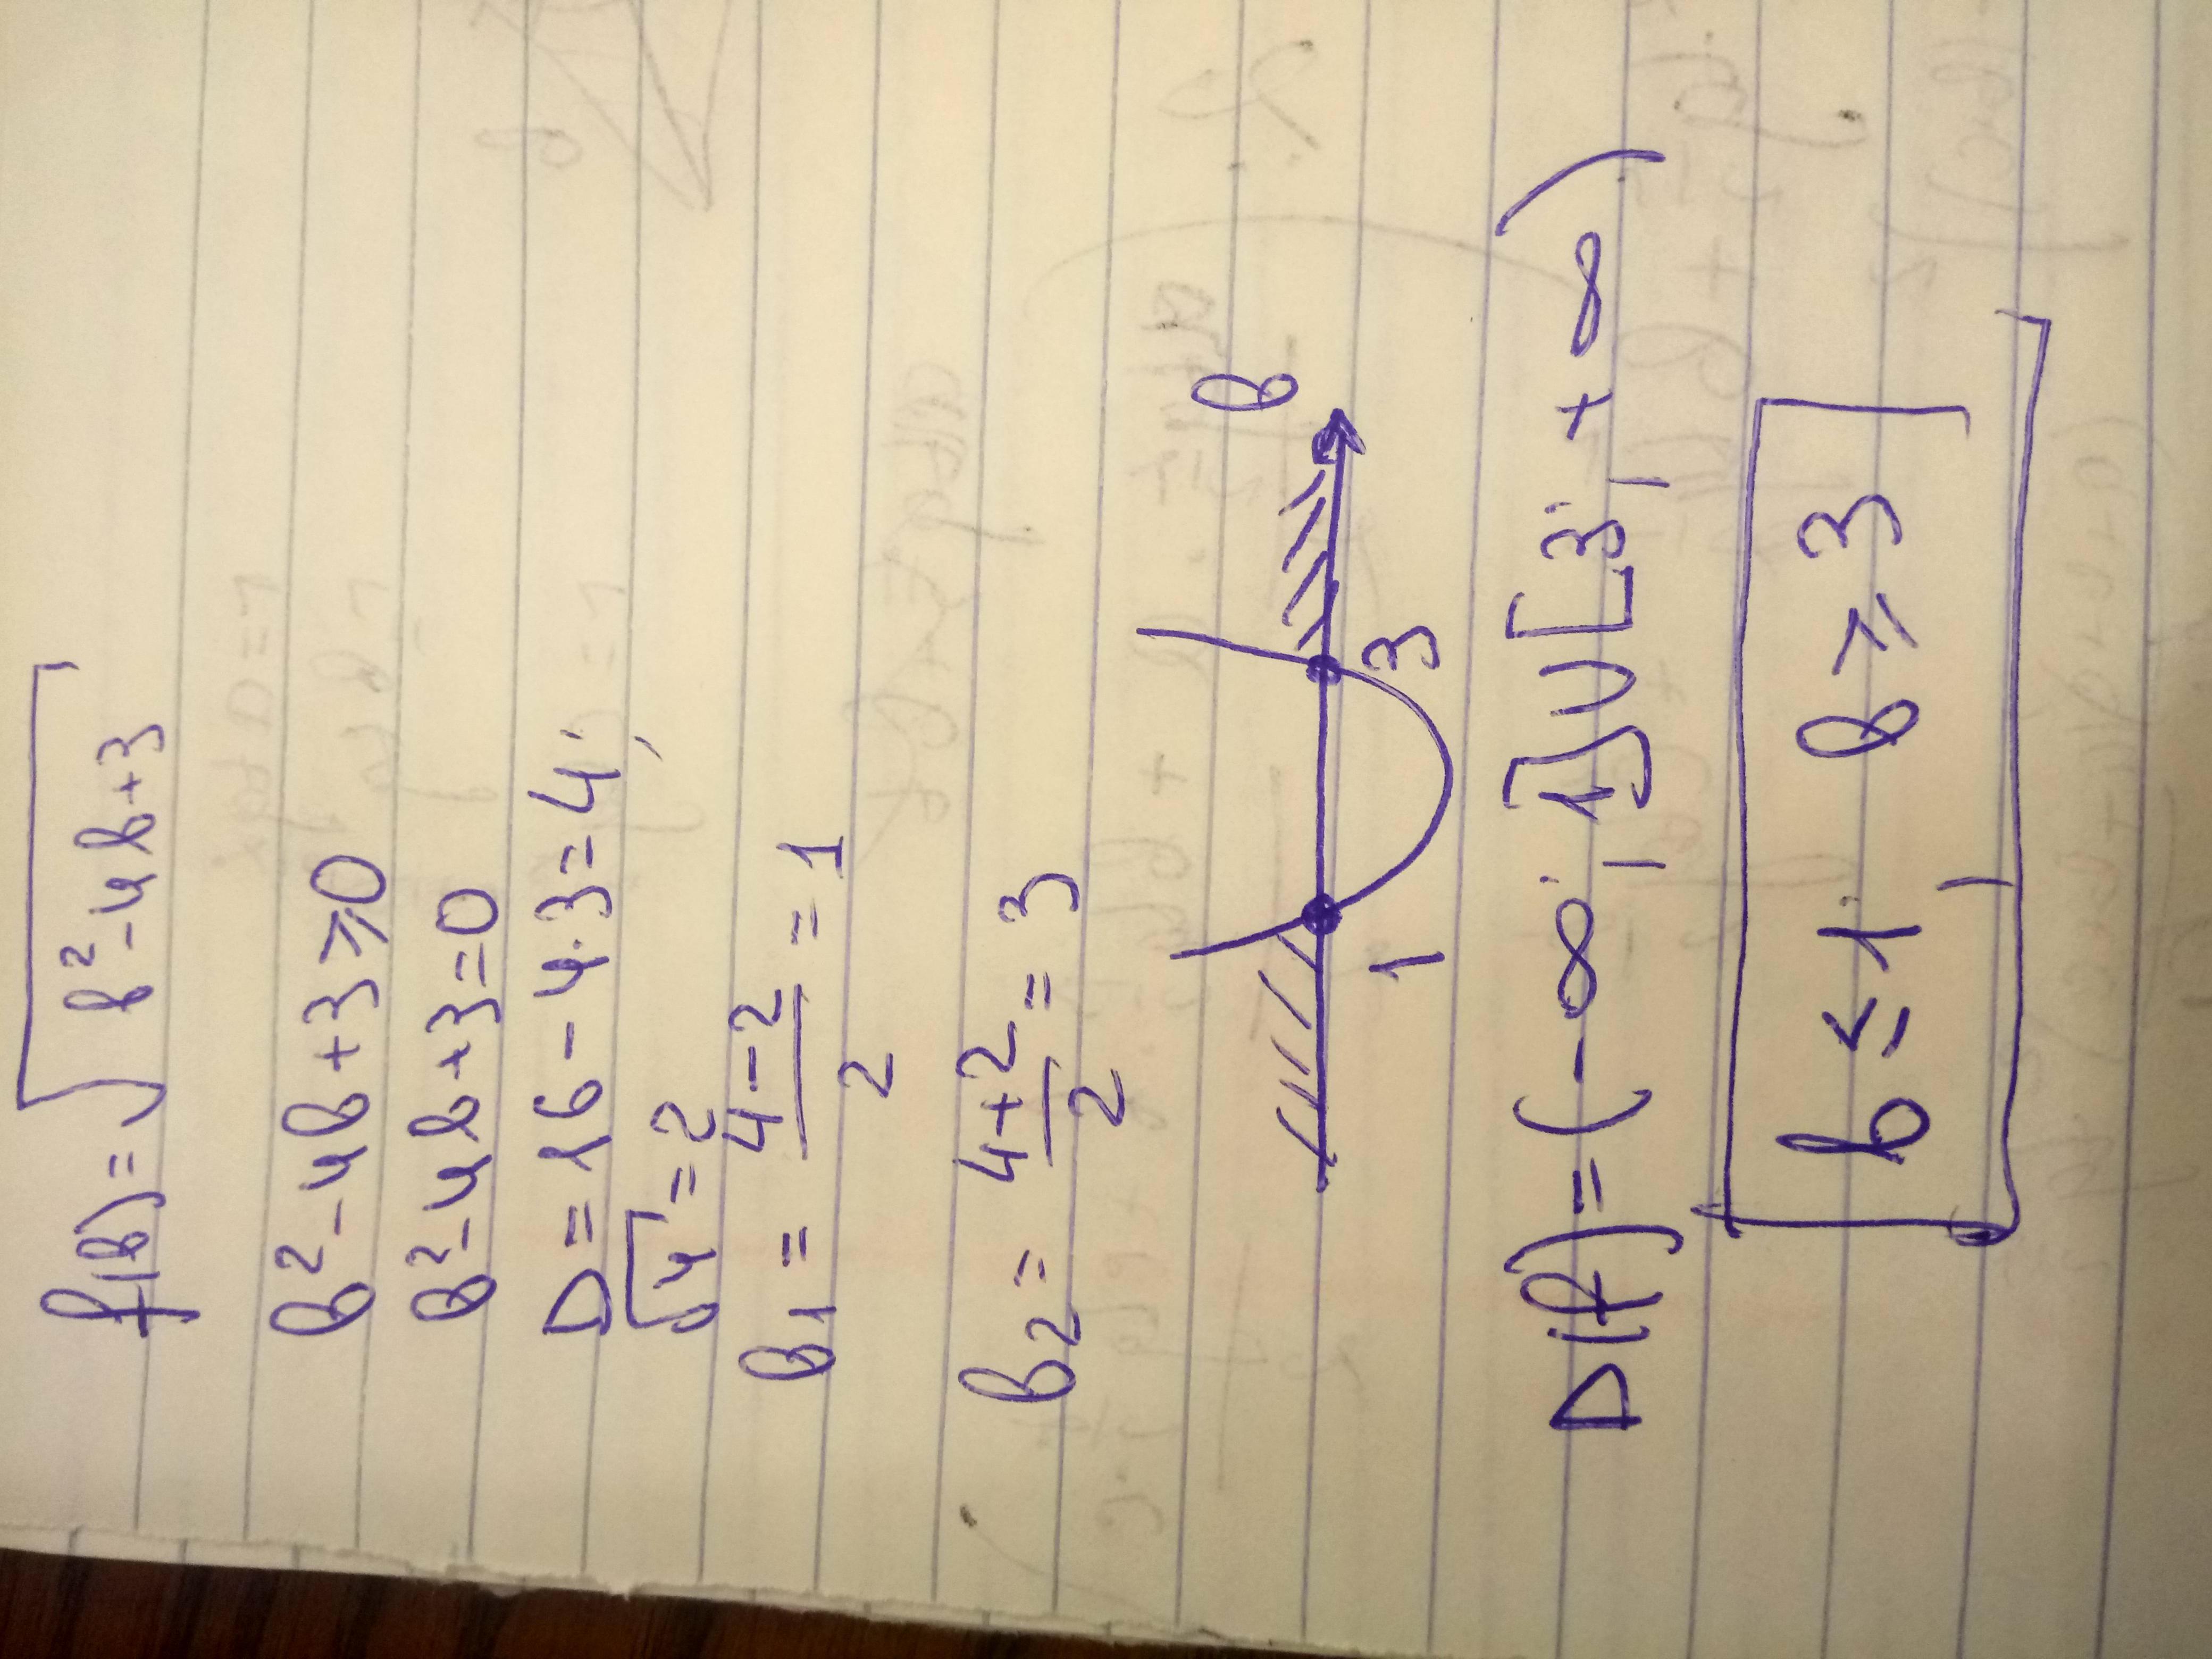 f(b)=√b²-4b+3
b²-4b+3⩾0
b²-4b+3=0
D=16-4·3=4;
√4=2
b₁=(4-2)/2=1
b₂=(4+2)/2=3
b
1 3
D(f)=(-∞;1]∪[3;+∞)
b≤1; b⩾3